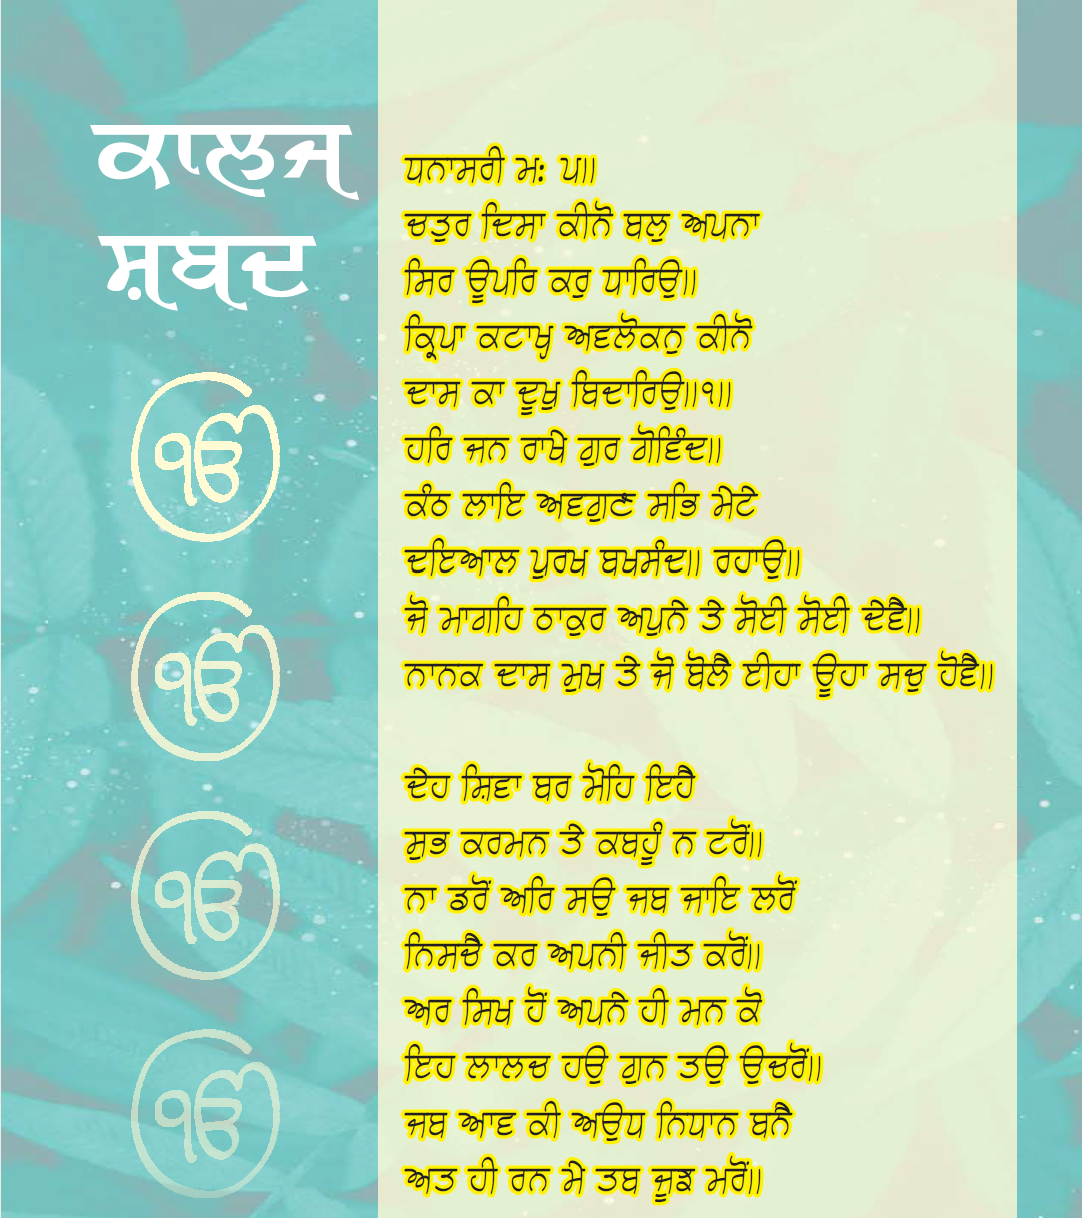 ਕਾਲਜ
ਸ਼ਬਦ
ੴ
ੴ
ੴ
ੴ
ਧਨਾਸਰੀ ਮ: ਪ॥
ਚਤੁਰ ਦਿਸਾ ਕੀਨੋ ਬਲੁ ਅਪਨਾ
ਸਿਰ ਊਪਰਿ ਕਰੁ ਧਾਰਿਉ॥
ਕ੍ਰਿਪਾ ਕਟਾਖ੍ਹ ਅਵਲੋਕਨੁ ਕੀਨੋ
ਦਾਸ ਕਾ ਦੂਖੁ ਬਿਦਾਰਿਉ॥੧॥
ਹਰਿ ਜਨ ਰਾਖੇ ਗੁਰ ਗੋਵਿੰਦ॥
ਕੰਠ ਲਾਇ ਅਵਗੁਣ ਸਭਿ ਮੇਟੇ
ਦਇਆਲ ਪੁਰਖ ਬਖਸੰਦ॥ ਰਹਾਉ॥
ਜੋ ਮਾਗਹਿ ਠਾਕੁਰ ਅਪੁਨੇ ਤੇ ਸੋਈ ਸੋਈ ਦੇਵੈ॥
ਨਾਨਕ ਦਾਸ ਮੁਖ ਤੇ ਜੋ ਬੋਲੈ ਈਹਾ ਊਹਾ ਸਚੁ ਹੋਵੈ॥
ਦੇਹ ਸ਼ਿਵਾ ਬਰ ਮੋਹਿ ਇਹੈ
ਸੁਭ ਕਰਮਨ ਤੇ ਕਬਹੂੰ ਨ ਟਰੋਂ॥
ਨਾ ਡਰੋਂ ਅਰਿ ਸਉ ਜਬ ਜਾਇ ਲਰੋਂ
ਨਿਸਚੈ ਕਰ ਅਪਨੀ ਜੀਤ ਕਰੋਂ॥
ਅਰ ਸਿਖ ਹੋਂ ਅਪਨੇ ਹੀ ਮਨ ਕੋ
ਇਹ ਲਾਲਚ ਹਉ ਗੁਨ ਤਉ ਉਚਰੋਂ॥
ਜਬ ਆਵ ਕੀ ਅਉਧ ਨਿਧਾਨ ਬਨੈ
ਅਤ ਹੀ ਰਨ ਮੇ ਤਬ ਜੂਝ ਮਰੋਂ॥